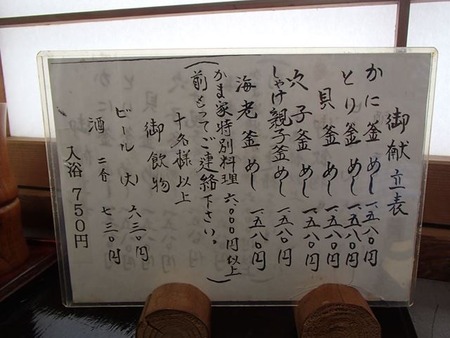 御献立表
かに釜めし 一五八〇円
とり釜めし 一五八〇円
貝釜めし 一五八〇円
穴子釜めし 一五八〇円
しゃけ親子釜めし 一五八〇円
海老釜めし 一五八〇円
かま家特別料理 六、〇〇〇円以上
(前もってご連絡下さい。)
十名様以上
御飲物
ビール(大) 六三〇円
酒 二合 七三〇円
入浴 750円